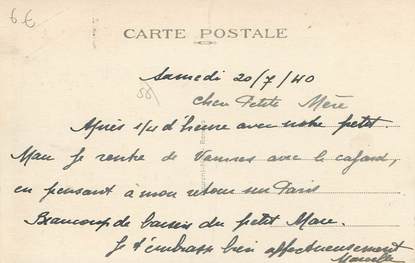 6€
CARTE POSTALE
Samedi 20/7/40
56
Chère Petite Mère
Après 1/4 d'heure avec notre petit
Marc je rentre de Vannes avec le cafard,
en pensant à mon retour sur Paris
Beaucoup de baisers du petit Marc.
Je t'embrasse bien affectueusement